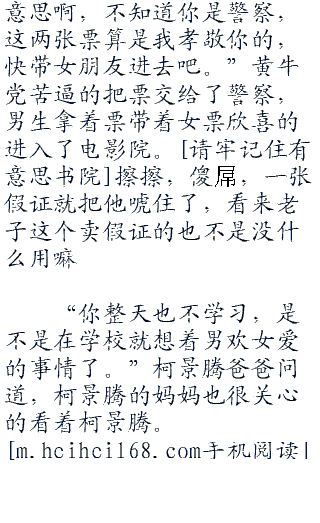 意思啊，不知道你是警察，
这两张票算是我孝敬你的，
快带女朋友进去吧。”黄牛
党苦逼的把票交给了警察，
男生拿着票带着女票欣喜的
进入了电影院。[请牢记住有
意思书院]擦擦，傻屌，一张
假证就把他唬住了，看来老
子这个卖假证的也不是没什
么用嘛
“你整天也不学习，是
不是在学校就想着男欢女爱
的事情了。”柯景腾爸爸问
道，柯景腾的妈妈也很关心
的看着柯景腾。
[m.hcihci168.com手机阅读|